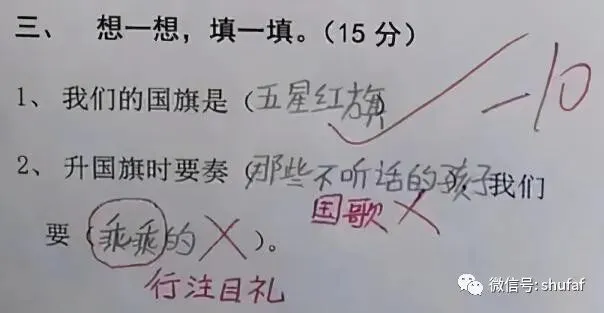 三、 想一想，填一填。（15 分）
1、我们的国旗是（五星红旗
-10
2、升国旗时要奏（那些不听话的孩子我们
国歌
要（乖乖的）。
行注目礼
微信号: shufaf